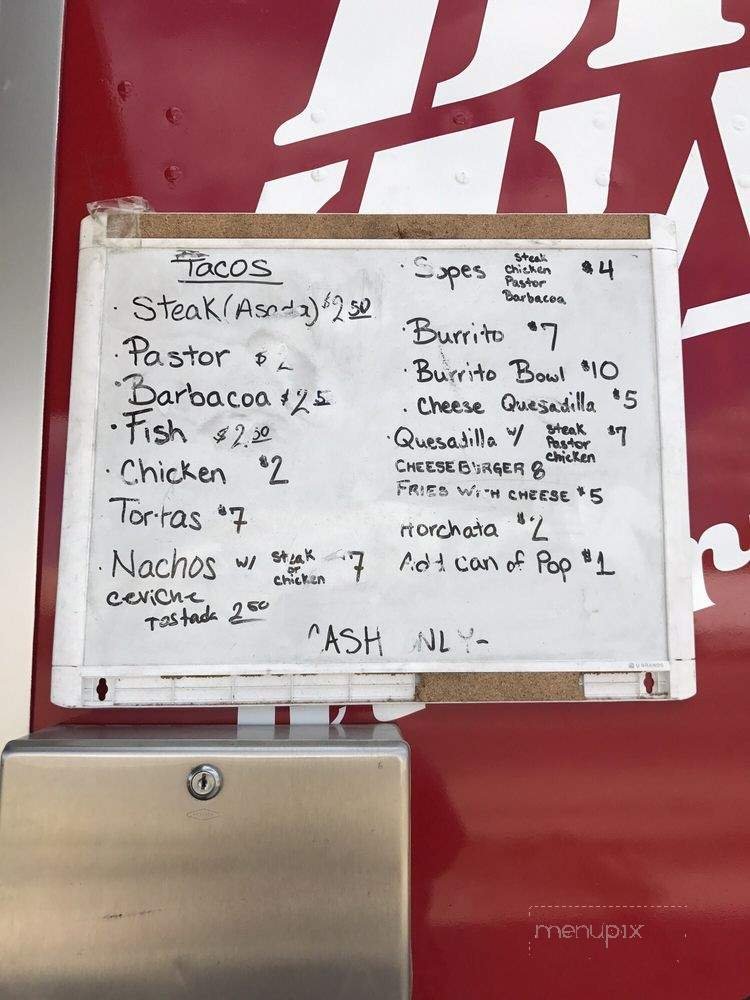 Tacos
· Steak (Asada) $2 50
· Pastor $2
· Barbacoa $2 5
· Fish $2.50
· Chicken $2
Tortas $7
· Nachos w/ steak or chicken 7
ceviche
Tostada 2 50
· Sopes Steak Chicken Pastor Barbacoa $4
· Burrito $7
· Burrito Bowl $10
· Cheese Quesadilla $5
· Quesadilla w/ Steak Pastor chicken $7
CHEESEBURGER 8
FRIES WITH CHEESE $5
Horchata $2
Add can of Pop $1
CASH ONLY-
U BRANDS
menupix